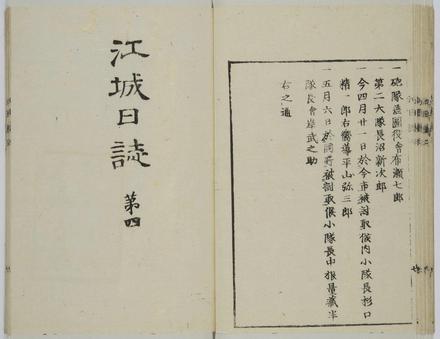 一砲隊差圖役會布瀬七郎
第二大隊長沼新次郎
一今四月廿一日於今市被討取候內小隊長杉口
精一郎右嚮導平山弥三郎
一五月六日於同所被討取候小隊長中根量藏半
隊長會岸武之助
右之通
江城日誌 第四